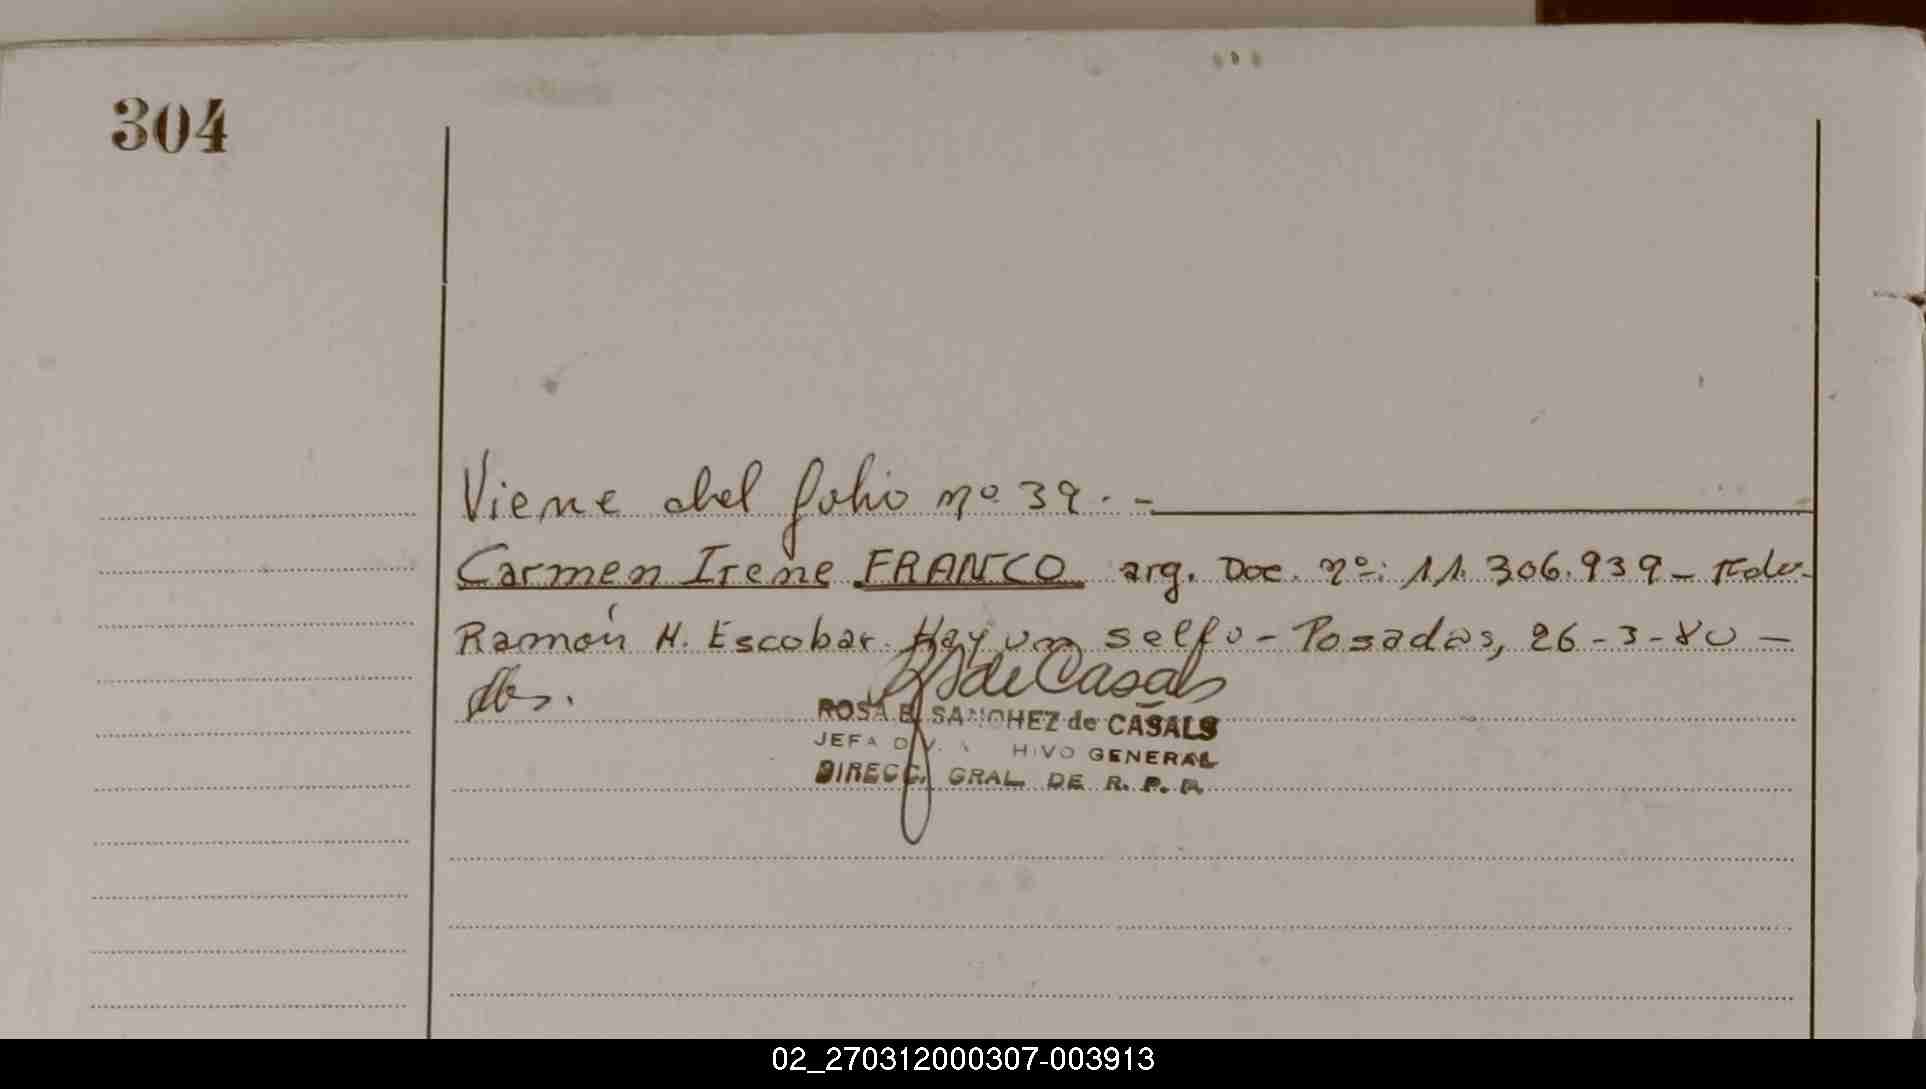 304
Viene del folio nº 39. -
Carmen Irene FRANCO arg. Doc. nº: 11.306.939 - Fdo.
Ramón H. Escobar. Hay un sello - Posadas, 26-3-80 -
de Casals
ROSA E. SANCHEZ de CASALS
JEFA DIV. HIVO GENERAL
DIRECC. GRAL DE R. P. P.
02_270312000307-003913